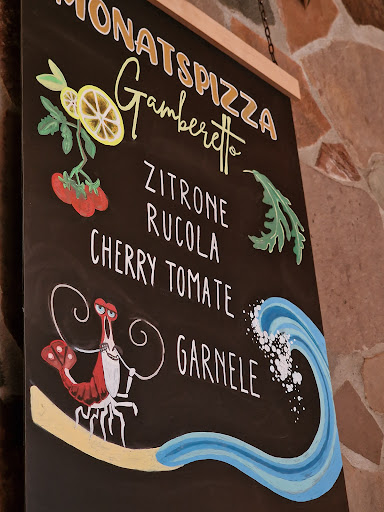 MONATSPIZZA
Gamberetto
ZITRONE
RUCOLA
CHERRY TOMATE
GARNELE